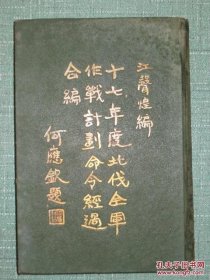 江聲煌編
十七年度北伐全軍
作戰計劃命令經過
合編
何應欽題